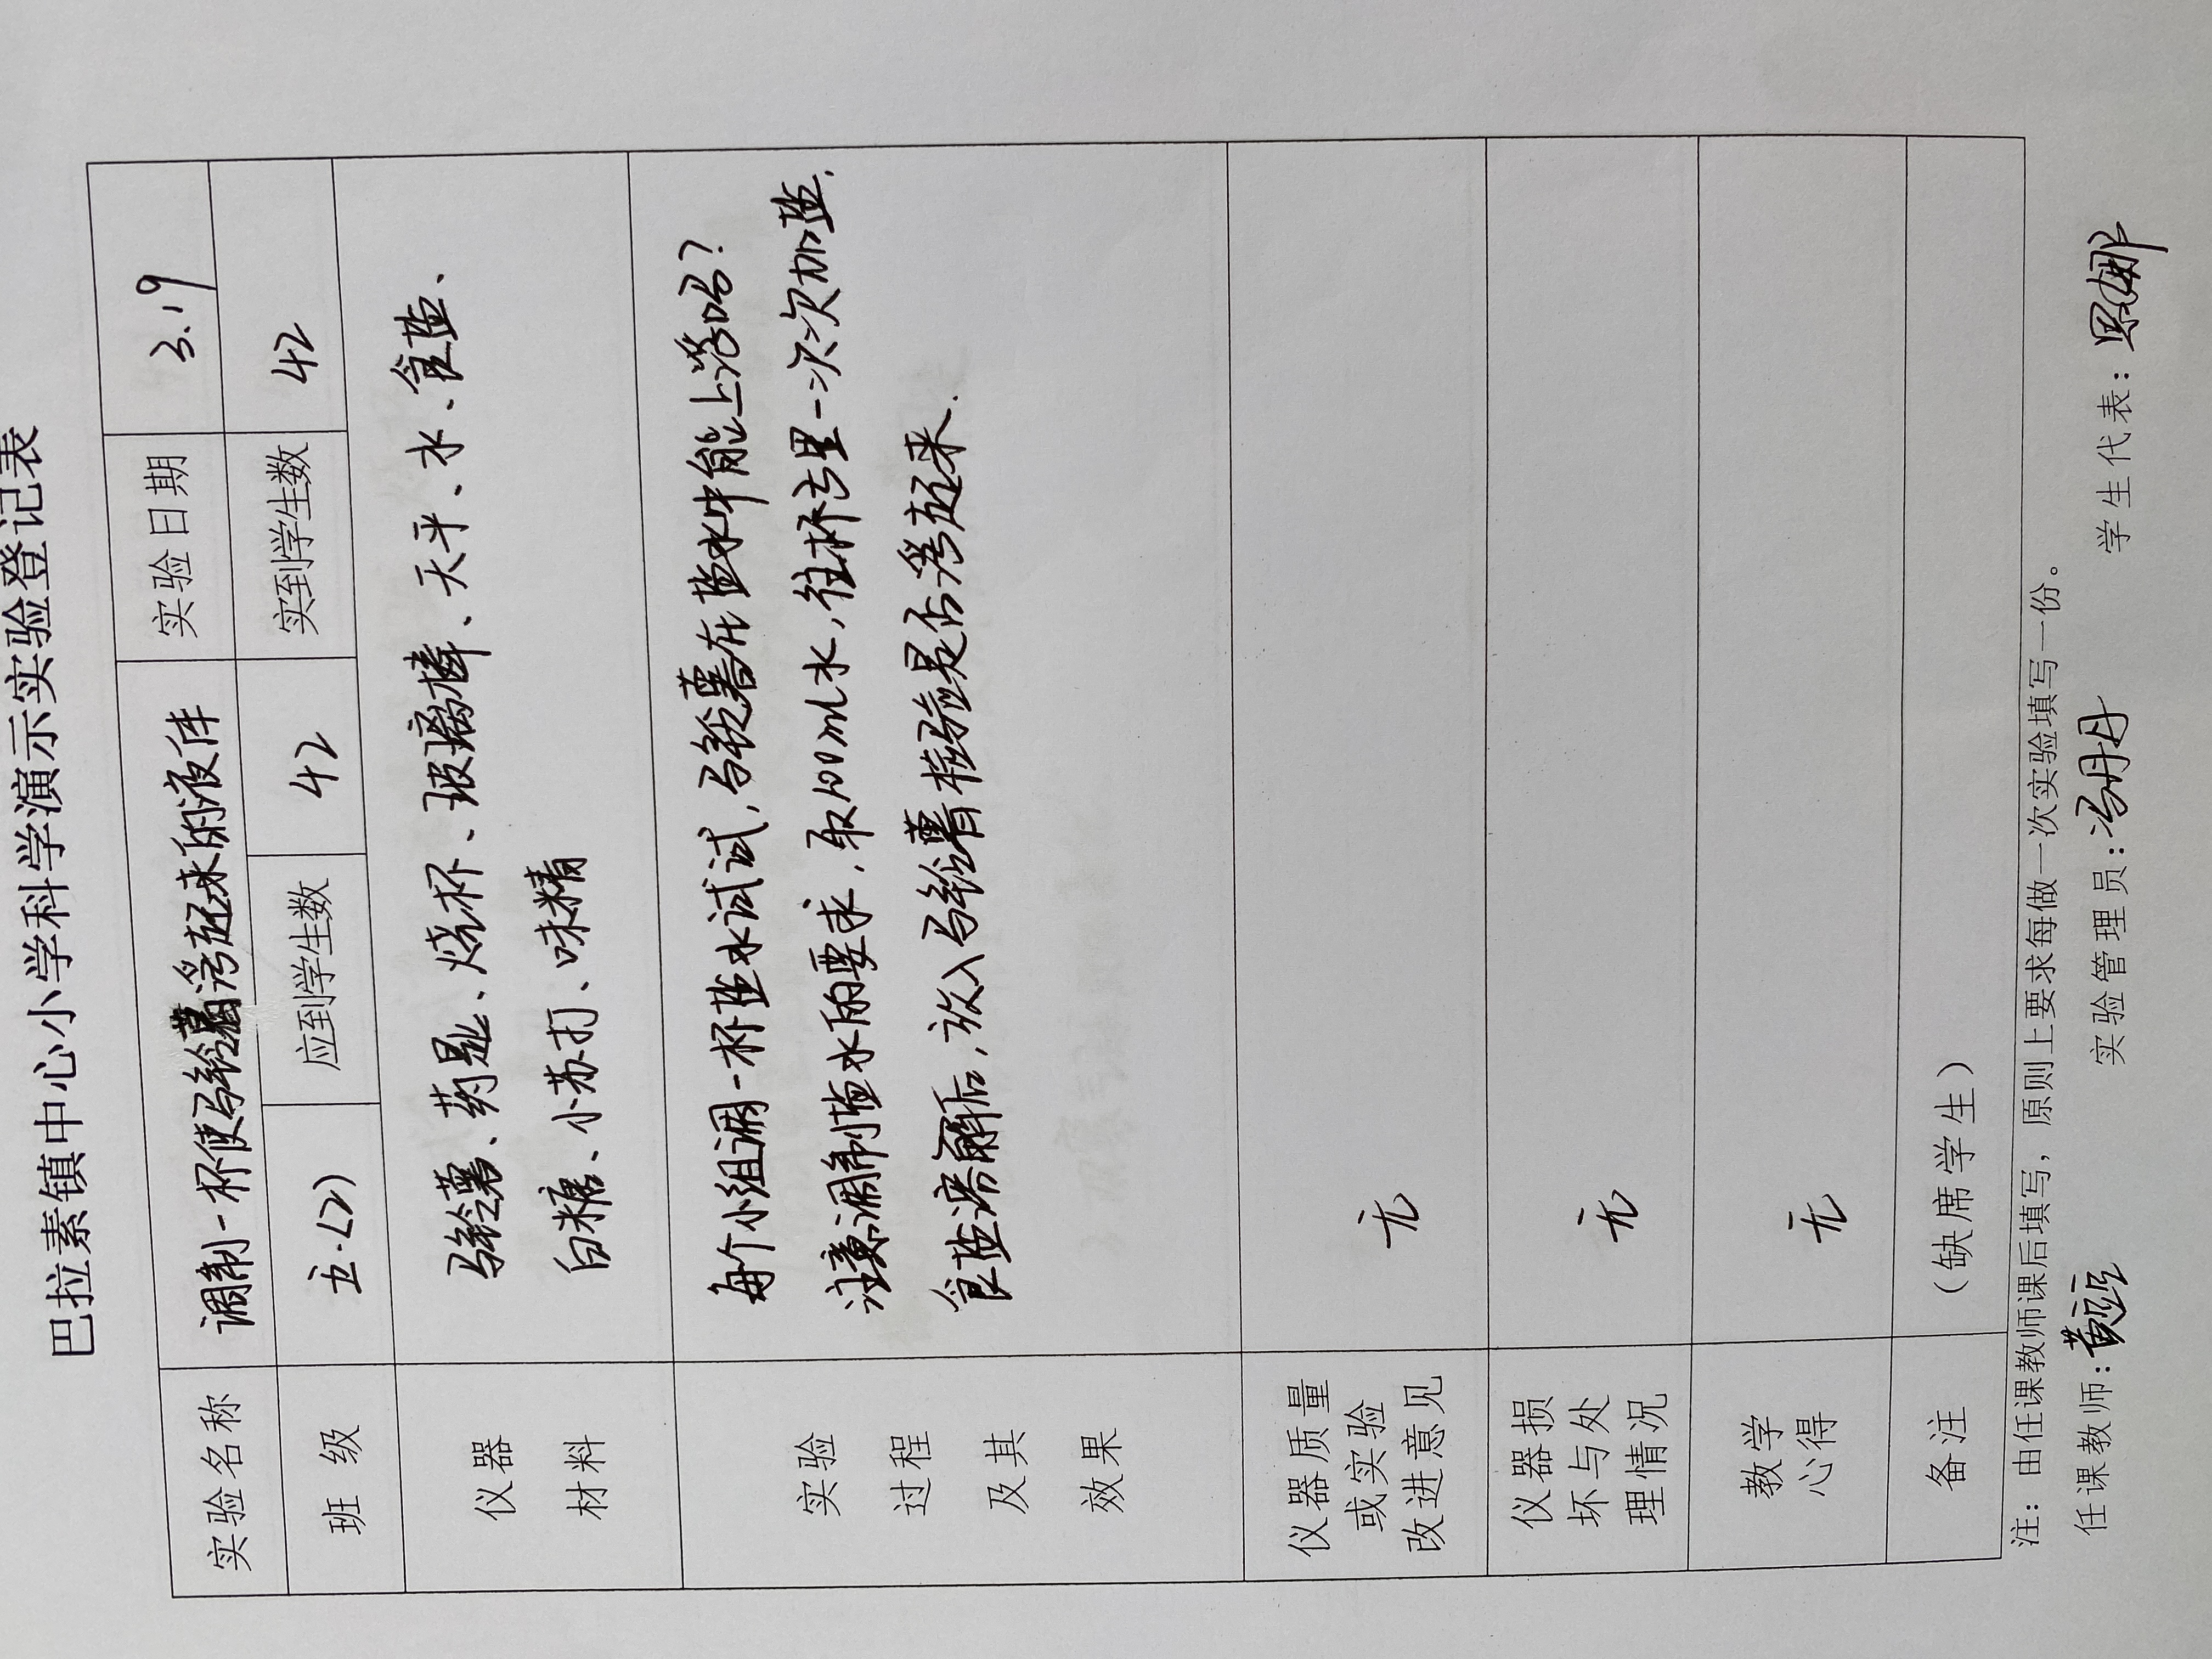 巴拉素镇中心小学科学演示实验登记表
实验名称 调制一杯使马铃薯浮起来的液体 实验日期 3.19
班 级 五.(2) 应到学生数 42 实到学生数 42
仪器 马铃薯、药匙、烧杯、玻璃棒、天平、水、食盐、
材料 白糖、小苏打、味精
实验 每个小组调一杯盐水试试,马铃薯在盐水中能上浮吗?
过程 注意调制盐水的要求,取100mL水,往杯里一次次加盐.
及其 食盐溶解后,放入马铃薯检验是否浮起来.
效果
仪器质量
或实验 无
改进意见
仪器损
坏与处 无
理情况
教学
心得 无
备注 (缺席学生)
注:由任课教师课后填写,原则上要求每做一次实验填写一份。
任课教师: 实验管理员:冯丹丹 学生代表: